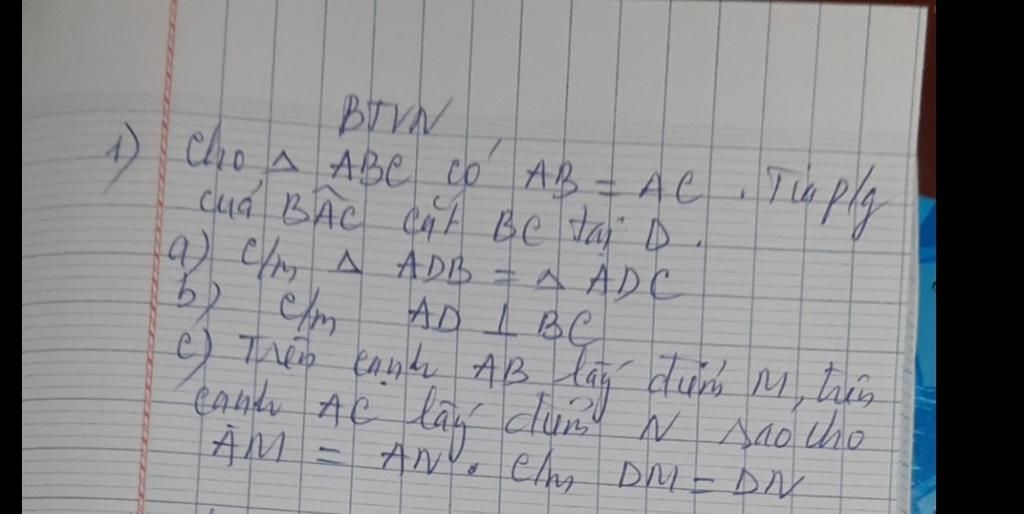 BTVN
1) Cho △ ABC có AB = AC. Tia p/g
của BÂC cắt BC tại D.
a) C/m △ ADB = △ ADC
b) C/m AD ⊥ BC
c) Trên cạnh AB lấy điểm M, trên
cạnh AC lấy điểm N sao cho
AM = AN. C/m DM = DN